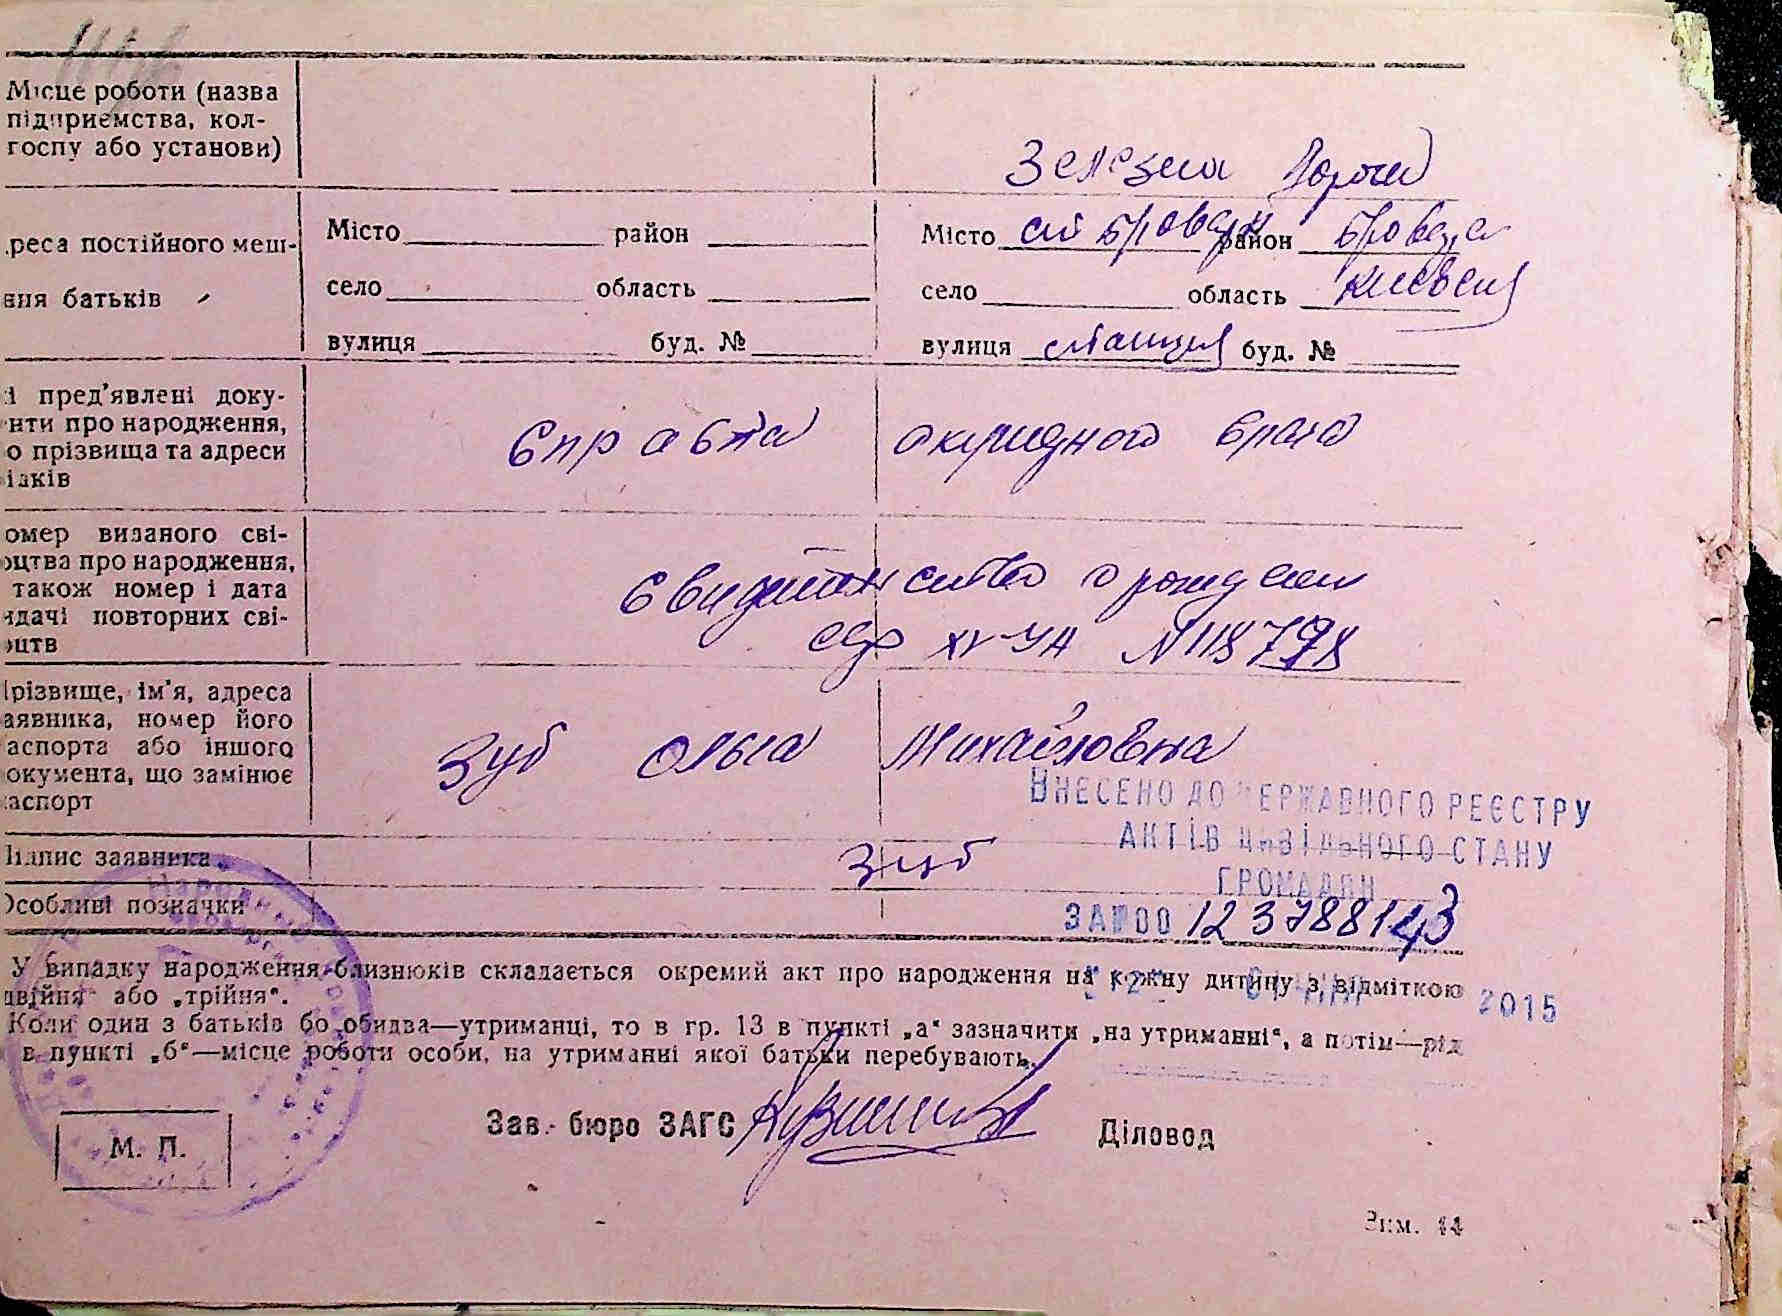 Місце роботи (назва
підприємства, кол-
госпу або установи)
Зелезна Дорога
реса постійного меш-
ння батьків
Місто район
Місто ст Бровари район Бровар
село область
село область Киевская
вулиця буд. №
вулиця станция буд. №
і пред'явлені доку-
нти про народження,
о прізвища та адреси
ідків
Справка окружного врача
омер виданого сві-
оцтва про народження,
також номер і дата
идачі повторних сві-
оцтв
Свидетельство о рождении
XV-УА №118798
Прізвище, ім'я, адреса
аявника, номер його
аспорта або іншого
окумента, що замінює
аспорт
Зуб Ольга Михайловна
ВНЕСЕНО ДО ДЕРЖАВНОГО РЕЄСТРУ
АКТІВ ЦИВІЛЬНОГО СТАНУ
ГРОМАДЯН
Підпис заявника
Зуб
Особливі позначки
ЗА №00 123788143
У випадку народження близнюків складається окремий акт про народження на кожну дитину з відміткою
двійня" або „трійня".
2015
Коли один з батьків бо обидва—утриманці, то в гр. 13 в пункті „а" зазначити „на утриманні", а потім—рід
в пункті „б"—місце роботи особи, на утриманні якої батьки перебувають.
Зав. бюро ЗАГС
Діловод
М. П.
Зим. 44